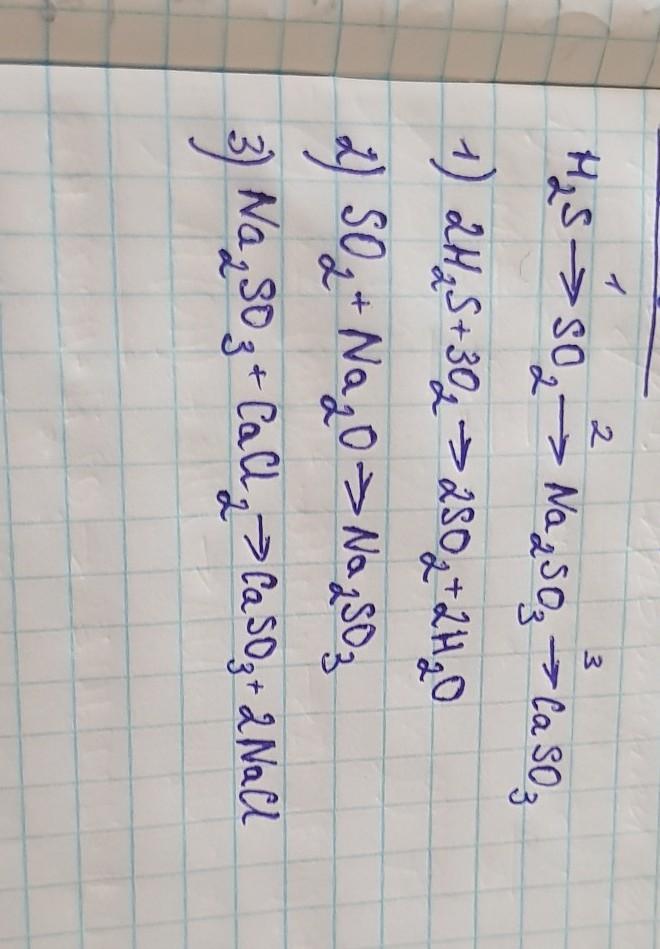 H₂S →¹ SO₂ →² Na₂SO₃ →³ CaSO₃
1) 2H₂S + 3O₂ → 2SO₂ + 2H₂O
2) SO₂ + Na₂O → Na₂SO₃
3) Na₂SO₃ + CaCl₂ → CaSO₃ + 2NaCl